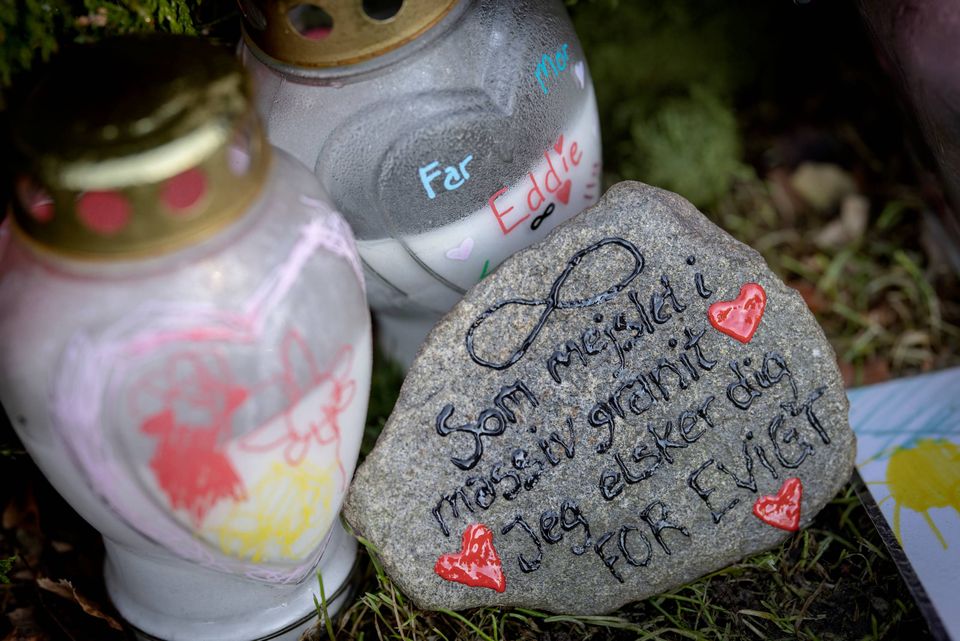 Mor
Far
Eddie
Som mejslet i
massiv granit
Jeg elsker dig
FOR EVIGT